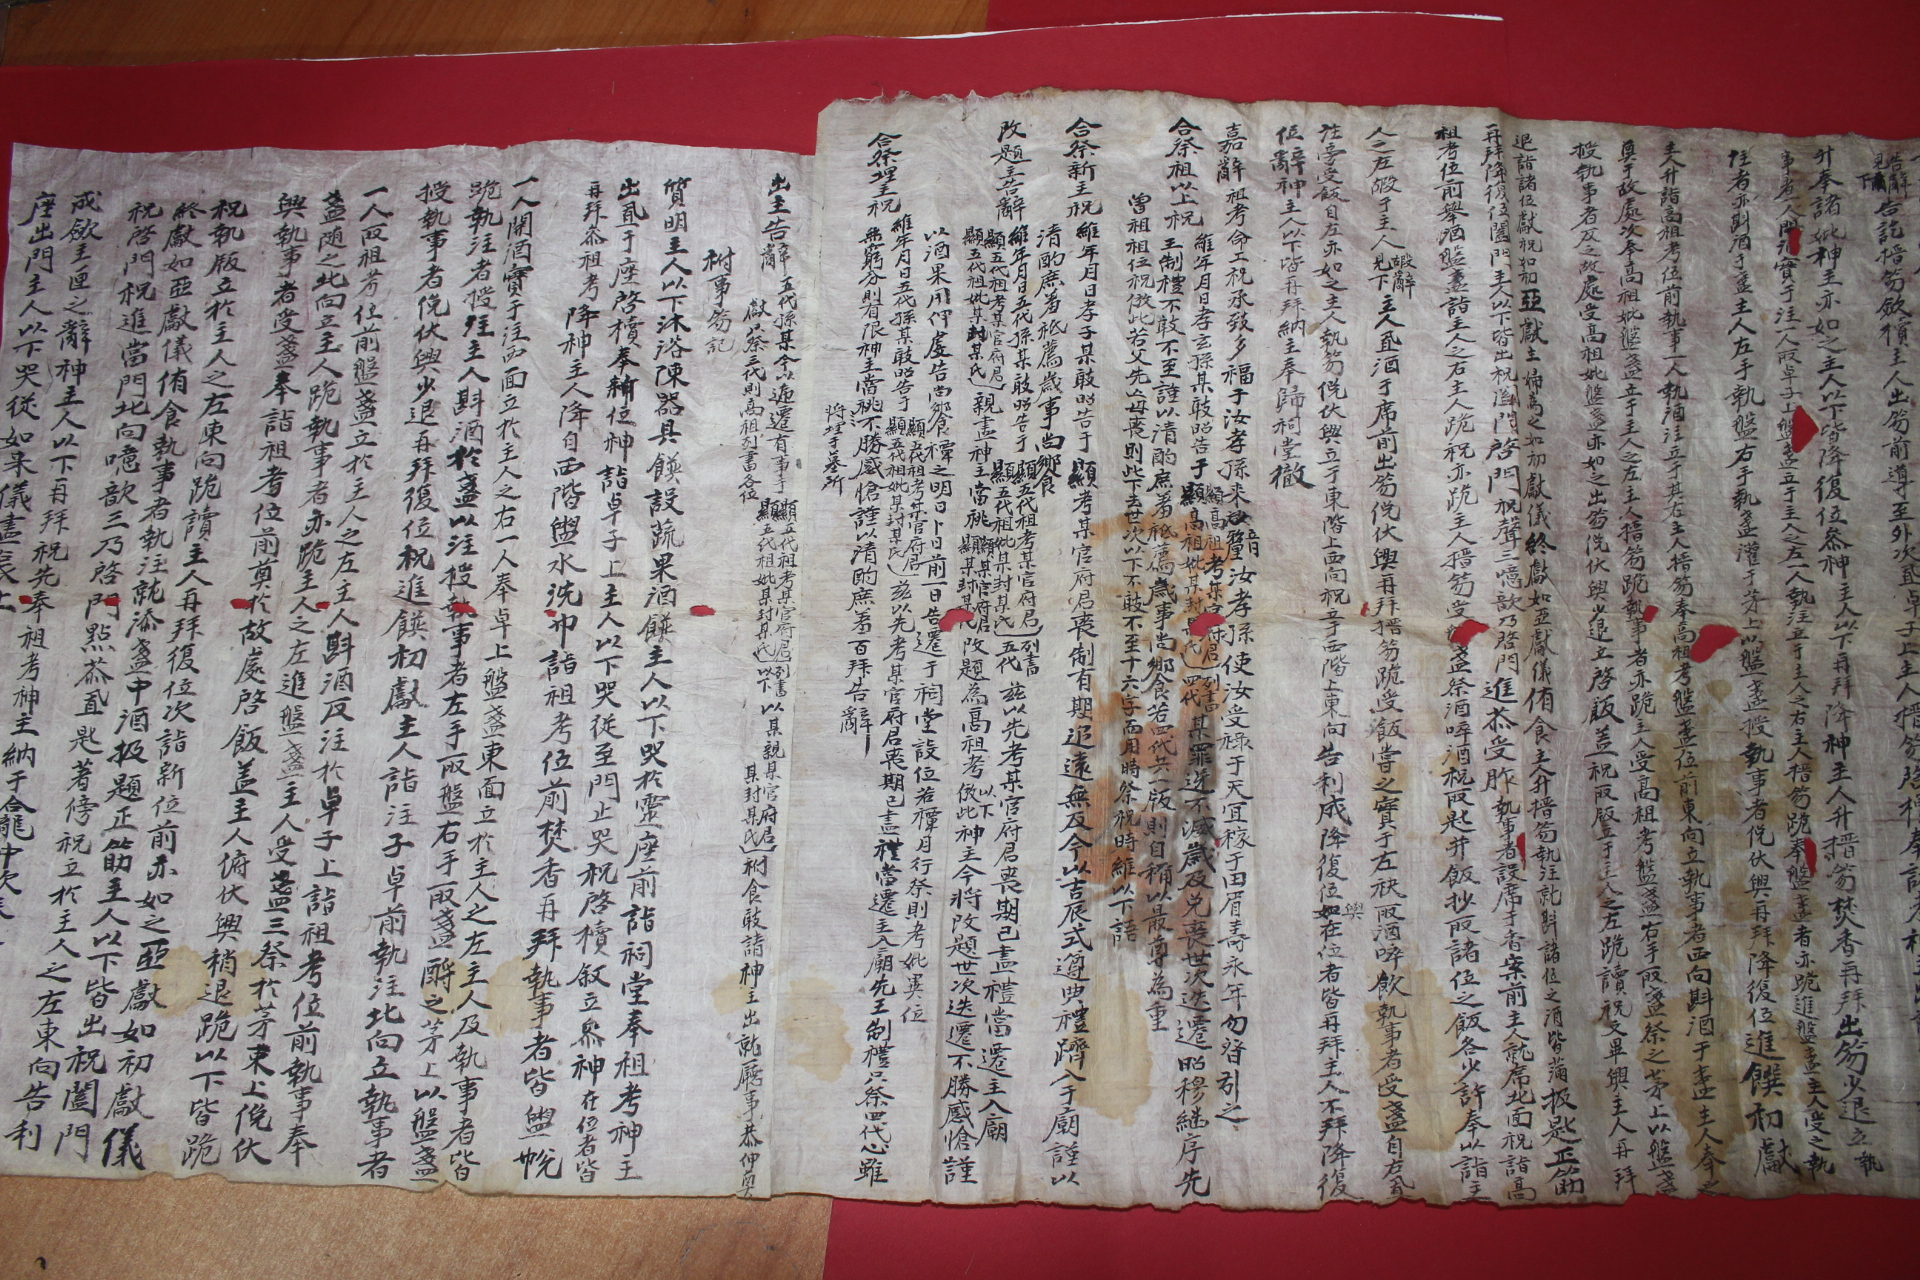 告訖搢笏斂櫝主人出笏前導至外次置卓子上主人搢笏啓櫝奉諸考神主
升奉諸妣神主亦如之主人以下皆降復位叅神主人以下再拜降神主人升搢笏焚香再拜出笏少退立執
事者一人開酒實于注一人取卓子上盤盞立于主人之左一人執注立于主人之右主人搢笏跪奉盤盞者亦跪進盤盞主人受之執
注者亦斟酒于盞主人左手執盤右手執盞灌于茅上以盤盞授執事者俛伏興再拜降復位進饌初獻
主人升詣高祖考位前執事一人執酒注立于其右主人搢笏奉高祖考盤盞位前東向立執事者西向斟酒于盞主人奉之
奠于故處次奉高祖妣盤盞立于主人之左主人搢笏跪執事者亦跪主人受高祖考盤盞右手取盞祭之茅上以盤盞
授執事者反之故處受高祖妣盤盞亦如之出笏俛伏興少退立啓飯蓋祝取版立于主人之左跪讀祝文畢興主人再拜
退詣諸位獻祝如初亞獻主婦爲之如初獻儀終獻如亞獻儀侑食主人升搢笏執注就斟諸位之酒皆滿扱匙正筯
再拜降復位闔門主人以下皆出祝闔門啓門祝聲三噫歆乃啓門進茶受胙執事者設席于香案前主人就席北面祝詣高
祖考位前擧酒盤盞詣主人之右主人跪祝亦跪主人搢笏受盤盞祭酒啐酒祝取匙并飯抄取諸位之飯各少許奉以詣主
人之左嘏于主人嘏辭見下主人置酒于席前出笏俛伏興再拜搢笏跪受飯嘗之實于左袂取酒啐飮執事者受盞自左置
注旁受飯自左亦如之主人執笏俛伏興立于東階上西向祝立于西階上東向告利成降復位興如在位者皆再拜主人不拜降復
位辭神主人以下皆再拜納主奉歸祠堂徹
嘉辭 祖考命工祝承致多福于汝孝孫來汝孝孫使汝受祿于天宜稼于田眉壽永年勿替引之
合祭祖以上祝 維年月日孝玄孫某敢昭告于顯高祖考某官府君顯高祖妣某封某氏列書四代某罪逆不滅歲及免喪世次迭遷昭穆繼序先
王制禮不敢不至謹以淸酌庶羞祗薦歲事尙饗食若四代共一版則自稱以最尊爲重
曾祖祖位祝倣此若父先亡母喪則此下去世次以下不敢不至十六字而用時祭祝時維以下語
合祭新主祝 維年月日孝子某敢昭告于顯考某官府君喪制有期追遠無及今以吉辰式遵典禮躋入于廟謹以
淸酌庶羞祗薦歲事尙饗
改題主告辭 維年月日五代孫某敢昭告于顯五代祖考某官府君顯五代祖妣某封某氏列書五代茲以先考某官府君喪期已盡禮當遷主入廟
顯五代祖考某官府君顯五代祖妣某封某氏親盡神主當祧顯某官府君顯某封某氏改題爲高祖考以下倣此神主今將改題世次迭遷不勝感愴謹
以酒果用伸虔告尙饗禫之明日卜日前一日告遷于祠堂設位若禫月行祭則考妣異位
合祭埋主祝 維年月日五代孫某敢昭告于顯五代祖考某官府君顯五代祖妣某封某氏茲以先考某官府君喪期已盡禮當遷主入廟先王制禮只祭四代心雖
無窮分則有限神主當祧將埋于墓所不勝感愴謹以淸酌庶羞百拜告辭
出主告辭 五代孫某今以遞遷有事于顯五代祖考某官府君顯五代祖妣某封某氏列書以下以某親某官府君某封某氏祔食敢請神主出就廳事恭伸奠
獻只祭三代則高祖列書各位
祔事笏記
質明主人以下沐浴陳器具饌設蔬果酒饌主人以下哭於靈座前詣祠堂奉祖考神主
出置于座啓櫝奉新位神詣卓子上主人以下哭從至門止哭祝啓櫝叙立叅神在位者皆
再拜叅祖考降神主人降自西階盥水洗巾詣祖考位前焚香再拜執事者皆盥帨
一人開酒實于注西面立於主人之右一人奉卓上盤盞東面立於主人之左主人及執事者皆
跪執注者授注主人斟酒於盞以注授執事者左手取盤右手取盞酹之茅上以盤盞
授執事者俛伏興少退再拜復位祝進饌初獻主人詣注子卓前執注北向立執事者
一人取祖考位前盤盞立於主人之左主人斟酒反注於卓子上詣祖考位前執事奉
盞隨之北向立主人跪執事者亦跪主人之左進盤盞主人受盞三祭於茅束上俛伏
興執事者受盞奉詣祖考位前奠於故處啓飯盖主人俯伏興稍退跪以下皆跪
祝執版立於主人之左東向跪讀主人再拜復位次詣新位前亦如之亞獻如初獻儀
終獻如亞獻儀侑食執事者執注就添盞中酒扱匙正筯主人以下皆出祝闔門
祝啓門祝進當門北向噫歆三乃啓門點茶置匙箸傍祝立於主人之左東向告利
成斂主匣之辭神主人以下再拜祝先奉祖考神主納于合龕中次奉
座出門主人以下哭從如來儀盡哀止